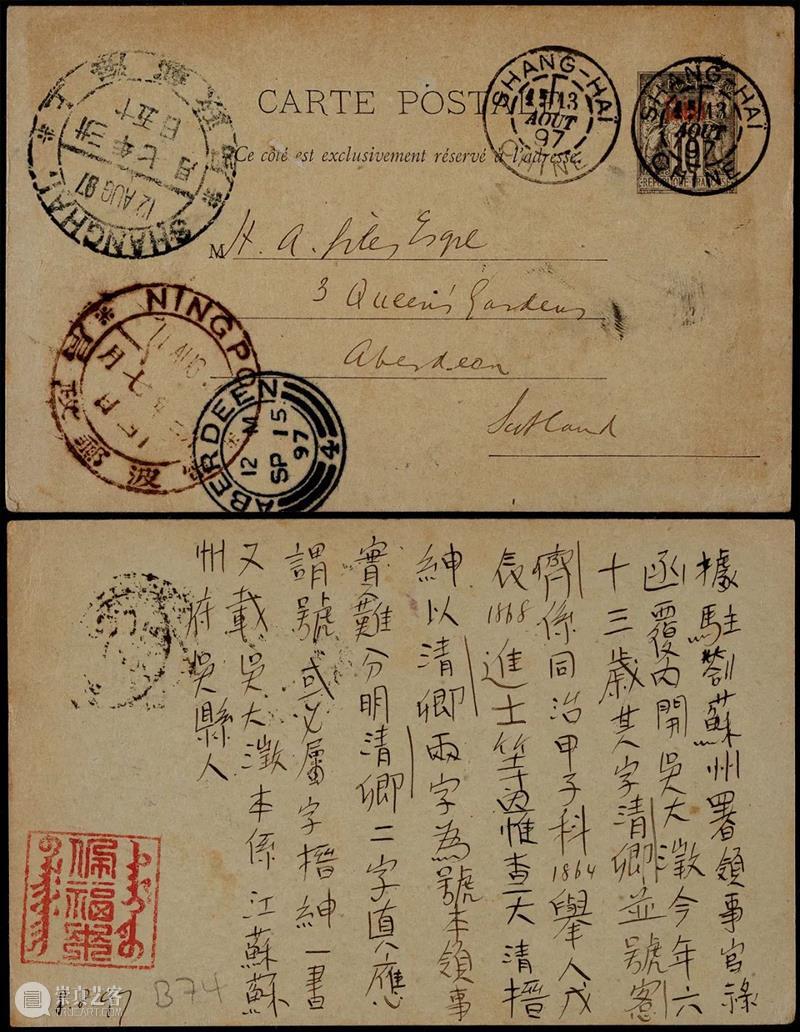 CARTE POSTALE
Ce côté est exclusivement réservé à l'adresse.
SHANG-HAÏ
13
AOUT
97
CHINE
SHANG-HAÏ
13
AOUT
97
CHINE
RÉPUBLIQUE FRANÇAISE
SHANGHAI
12 AUG 97
M H. A. Giles Esqre
3 Queen's Gardens
Aberdeen
Scotland
NINGPO
11 AUG
ABERDEEN
12 M
SP 15
97
4
據駐劄蘇州署領事官祿
函覆內開吳大澂今年六
十三歲其人字清卿並號愙
齋係同治甲子科1864舉人戊
辰1868進士等因惟查大清搢
紳以清卿兩字為號本領事
實難分明清卿二字真應
謂號或必屬字搢紳一書
又載吳大澂本係江蘇蘇
州府吳縣人
佩福來
B74
崇真艺客